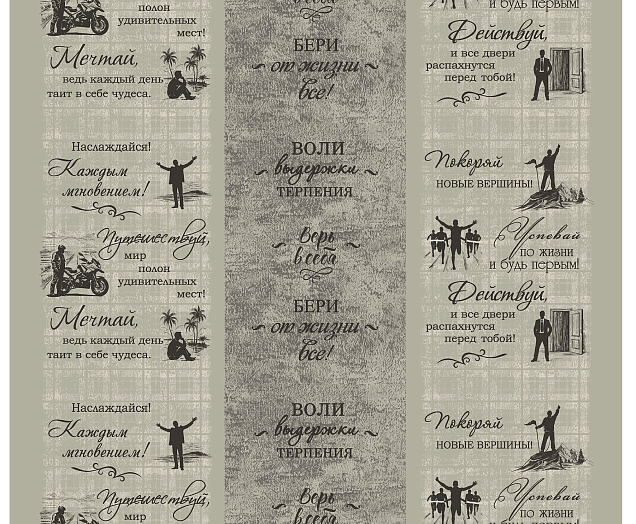 полон
удивительных
мест!
Мечтай,
ведь каждый день
таит в себе чудеса.
Наслаждайся!
Каждым
мгновением!
Путешествуй,
мир
полон
удивительных
мест!
Мечтай,
ведь каждый день
таит в себе чудеса.
Наслаждайся!
Каждым
мгновением!
Путешествуй,
мир
в себя
БЕРИ
от жизни
все!
ВОЛИ
выдержки
ТЕРПЕНИЯ
Верь
в себя
БЕРИ
от жизни
все!
ВОЛИ
выдержки
ТЕРПЕНИЯ
Верь
в себя
и будь первым!
Действуй,
и все двери
распахнутся
перед тобой!
Покоряй
НОВЫЕ ВЕРШИНЫ!
Успевай
по жизни
и будь первым!
Действуй,
и все двери
распахнутся
перед тобой!
Покоряй
НОВЫЕ ВЕРШИНЫ!
Успевай
по жизни
и будь первым!